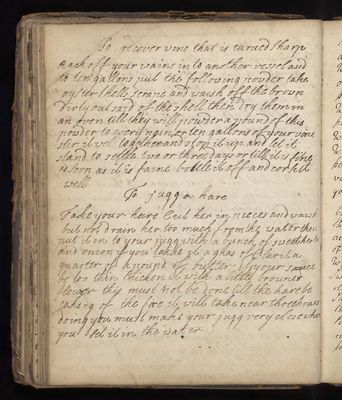 To recover vine that is turned sharp
rack off your vaine in to another vessel and
to ten gallons put the following powder take
oyster shells scrape and wash off the brown
dirty out said of the shell then dry them in
an oven till they will powder a pound of this
powder to every nine or ten gallons of your vaine
stir it vel together and stop it up and let it
stand to settle two or three days or till it is fine
as soon as it is faine bottle it off and cork it
well
To jugg a hare
Take your hare Cut her in peeces and vash
but not drain her too much from the vater then
put it in to your jugg with a bunch of sweet herbs
and onion if you take it a glas of Clarit a
quarter of a pound of butter if your sauce
be too thin thicken it with a little browned
flower thy must not be done till the hare be
taking of the fire it will take near three hours
doing you must make your jugg very close who
you set it in the vater